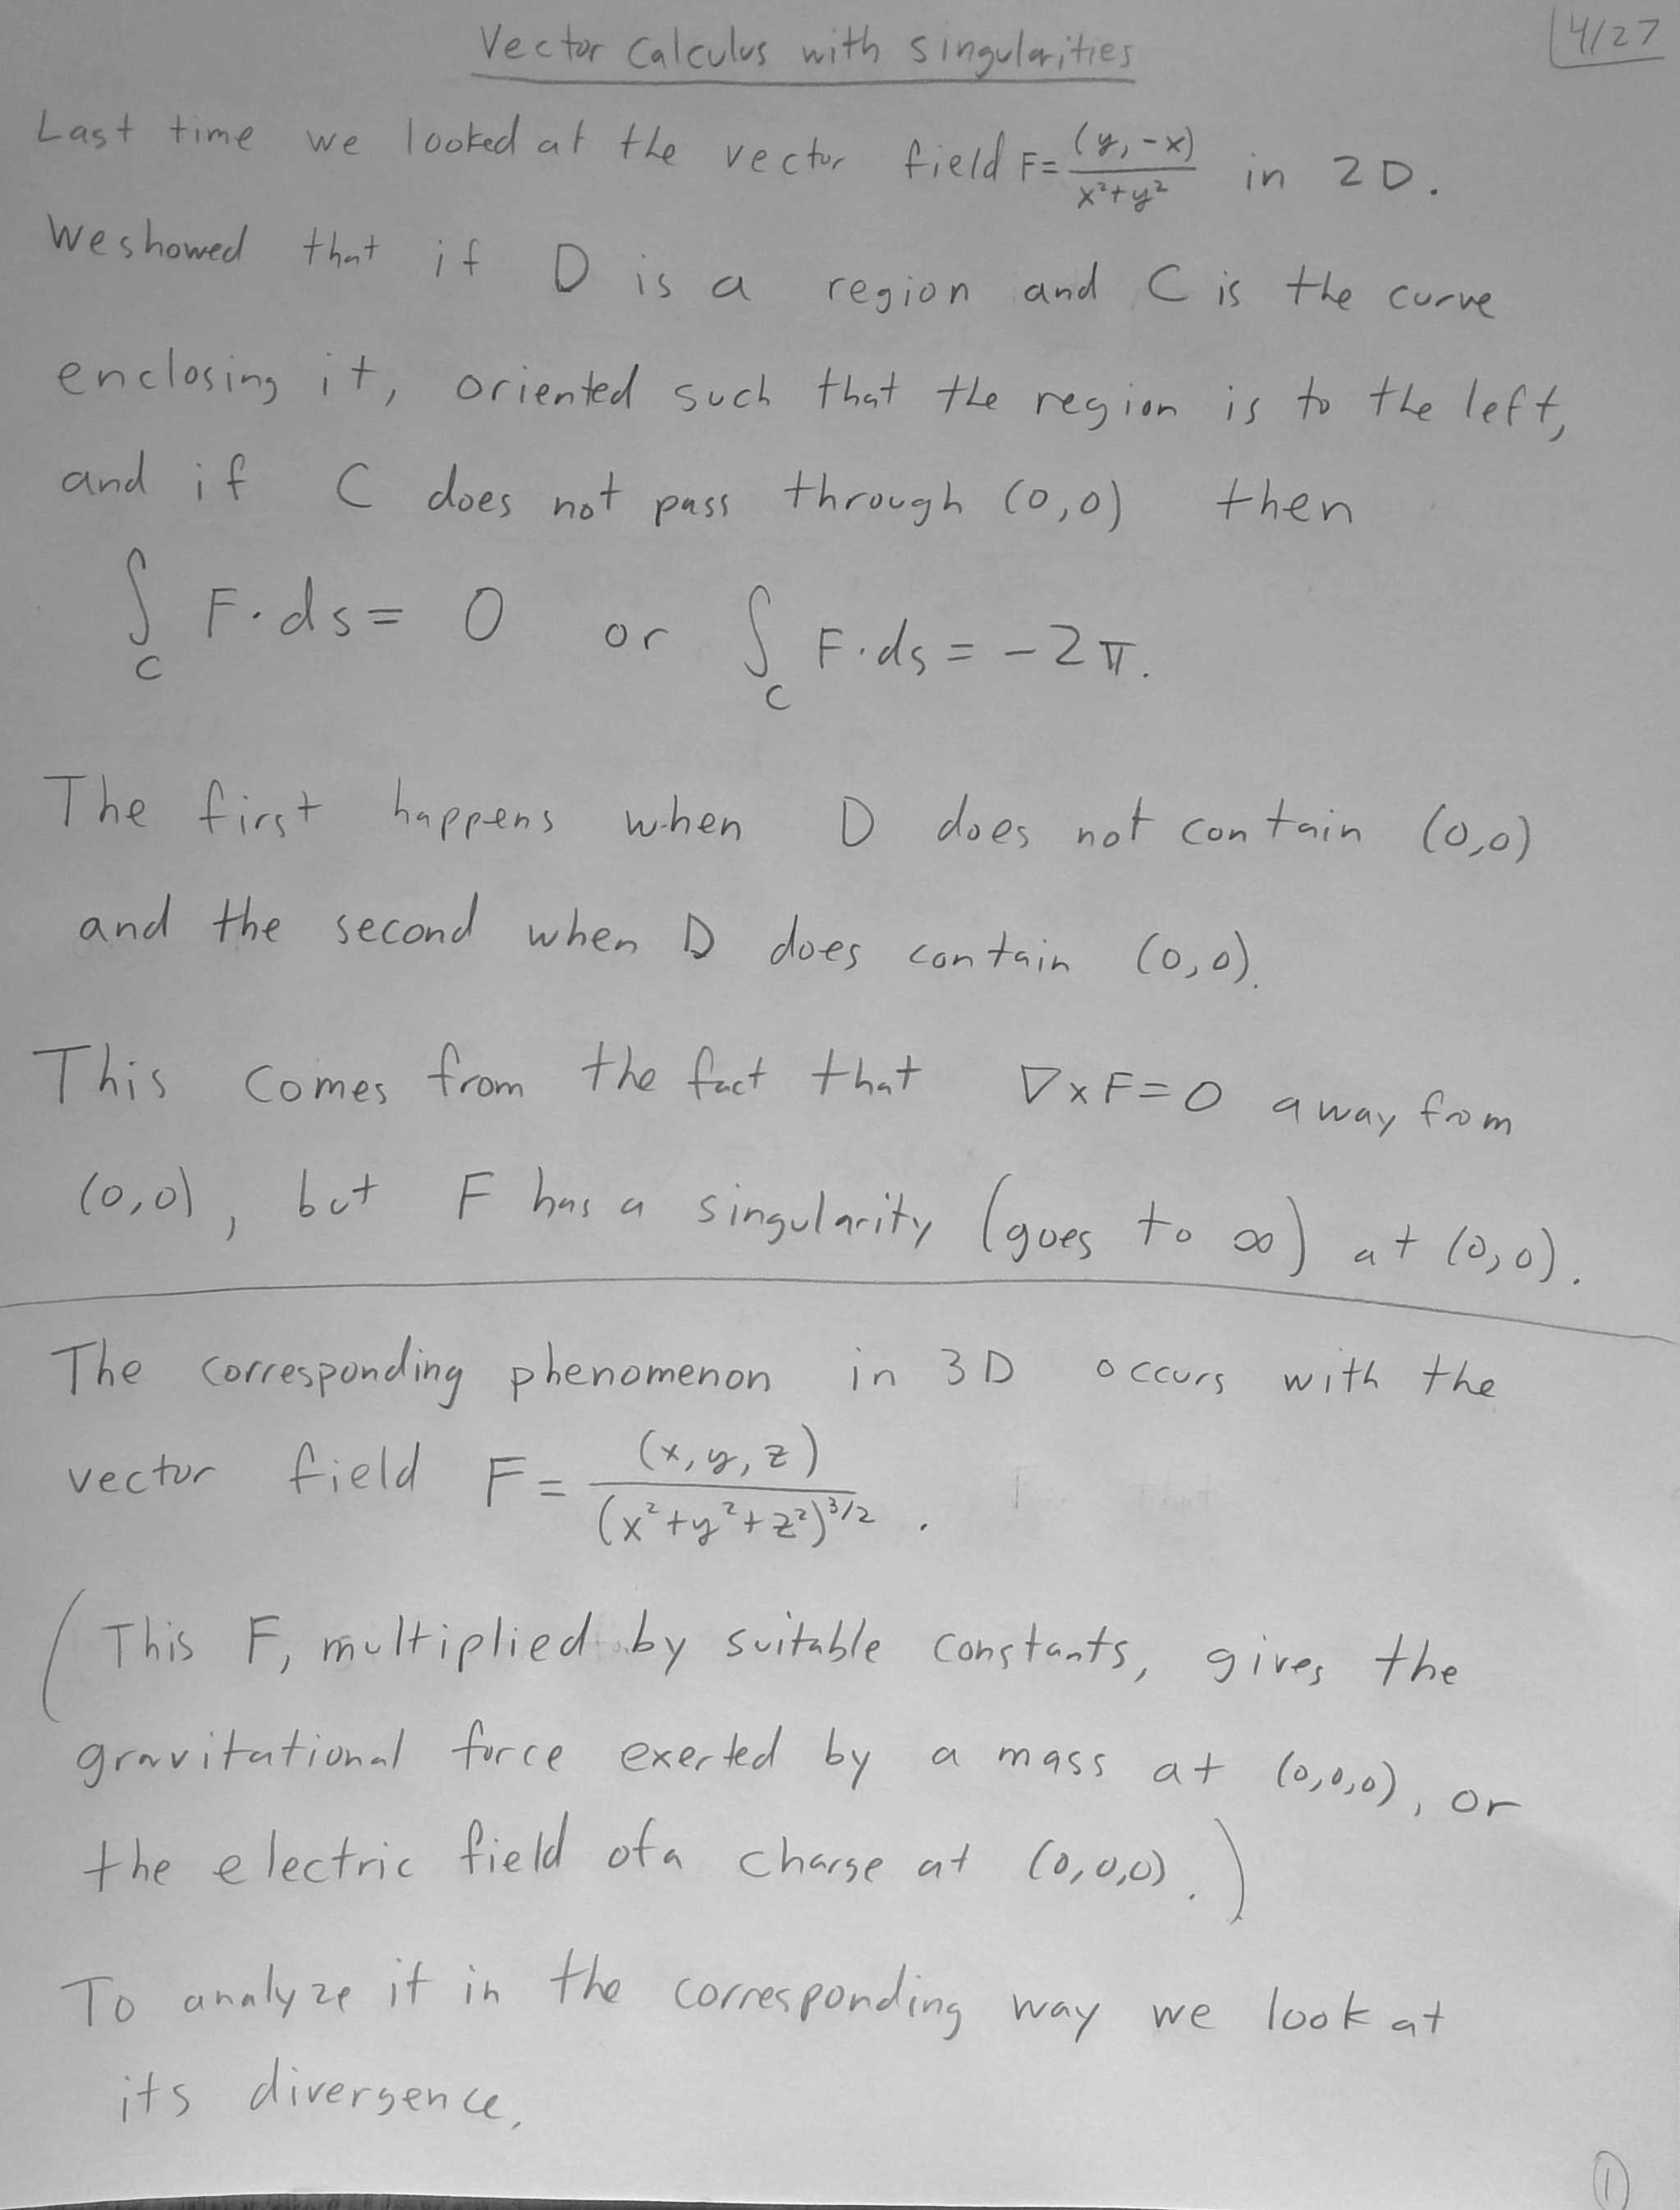 Vector Calculus with singularities
4/27
Last time we looked at the vector field F = (y, -x) / (x²+y²) in 2D.
We showed that if D is a region and C is the curve
enclosing it, oriented such that the region is to the left,
and if C does not pass through (0,0) then
∫_C F·ds = 0 or ∫_C F·ds = -2π.
The first happens when D does not contain (0,0)
and the second when D does contain (0,0).
This comes from the fact that ∇×F=0 away from
(0,0), but F has a singularity (goes to ∞) at (0,0).
The corresponding phenomenon in 3D occurs with the
vector field F = (x, y, z) / (x²+y²+z²)^(3/2).
(This F, multiplied by suitable constants, gives the
gravitational force exerted by a mass at (0,0,0), or
the electric field of a charge at (0,0,0).)
To analyze it in the corresponding way we look at
its divergence.
1